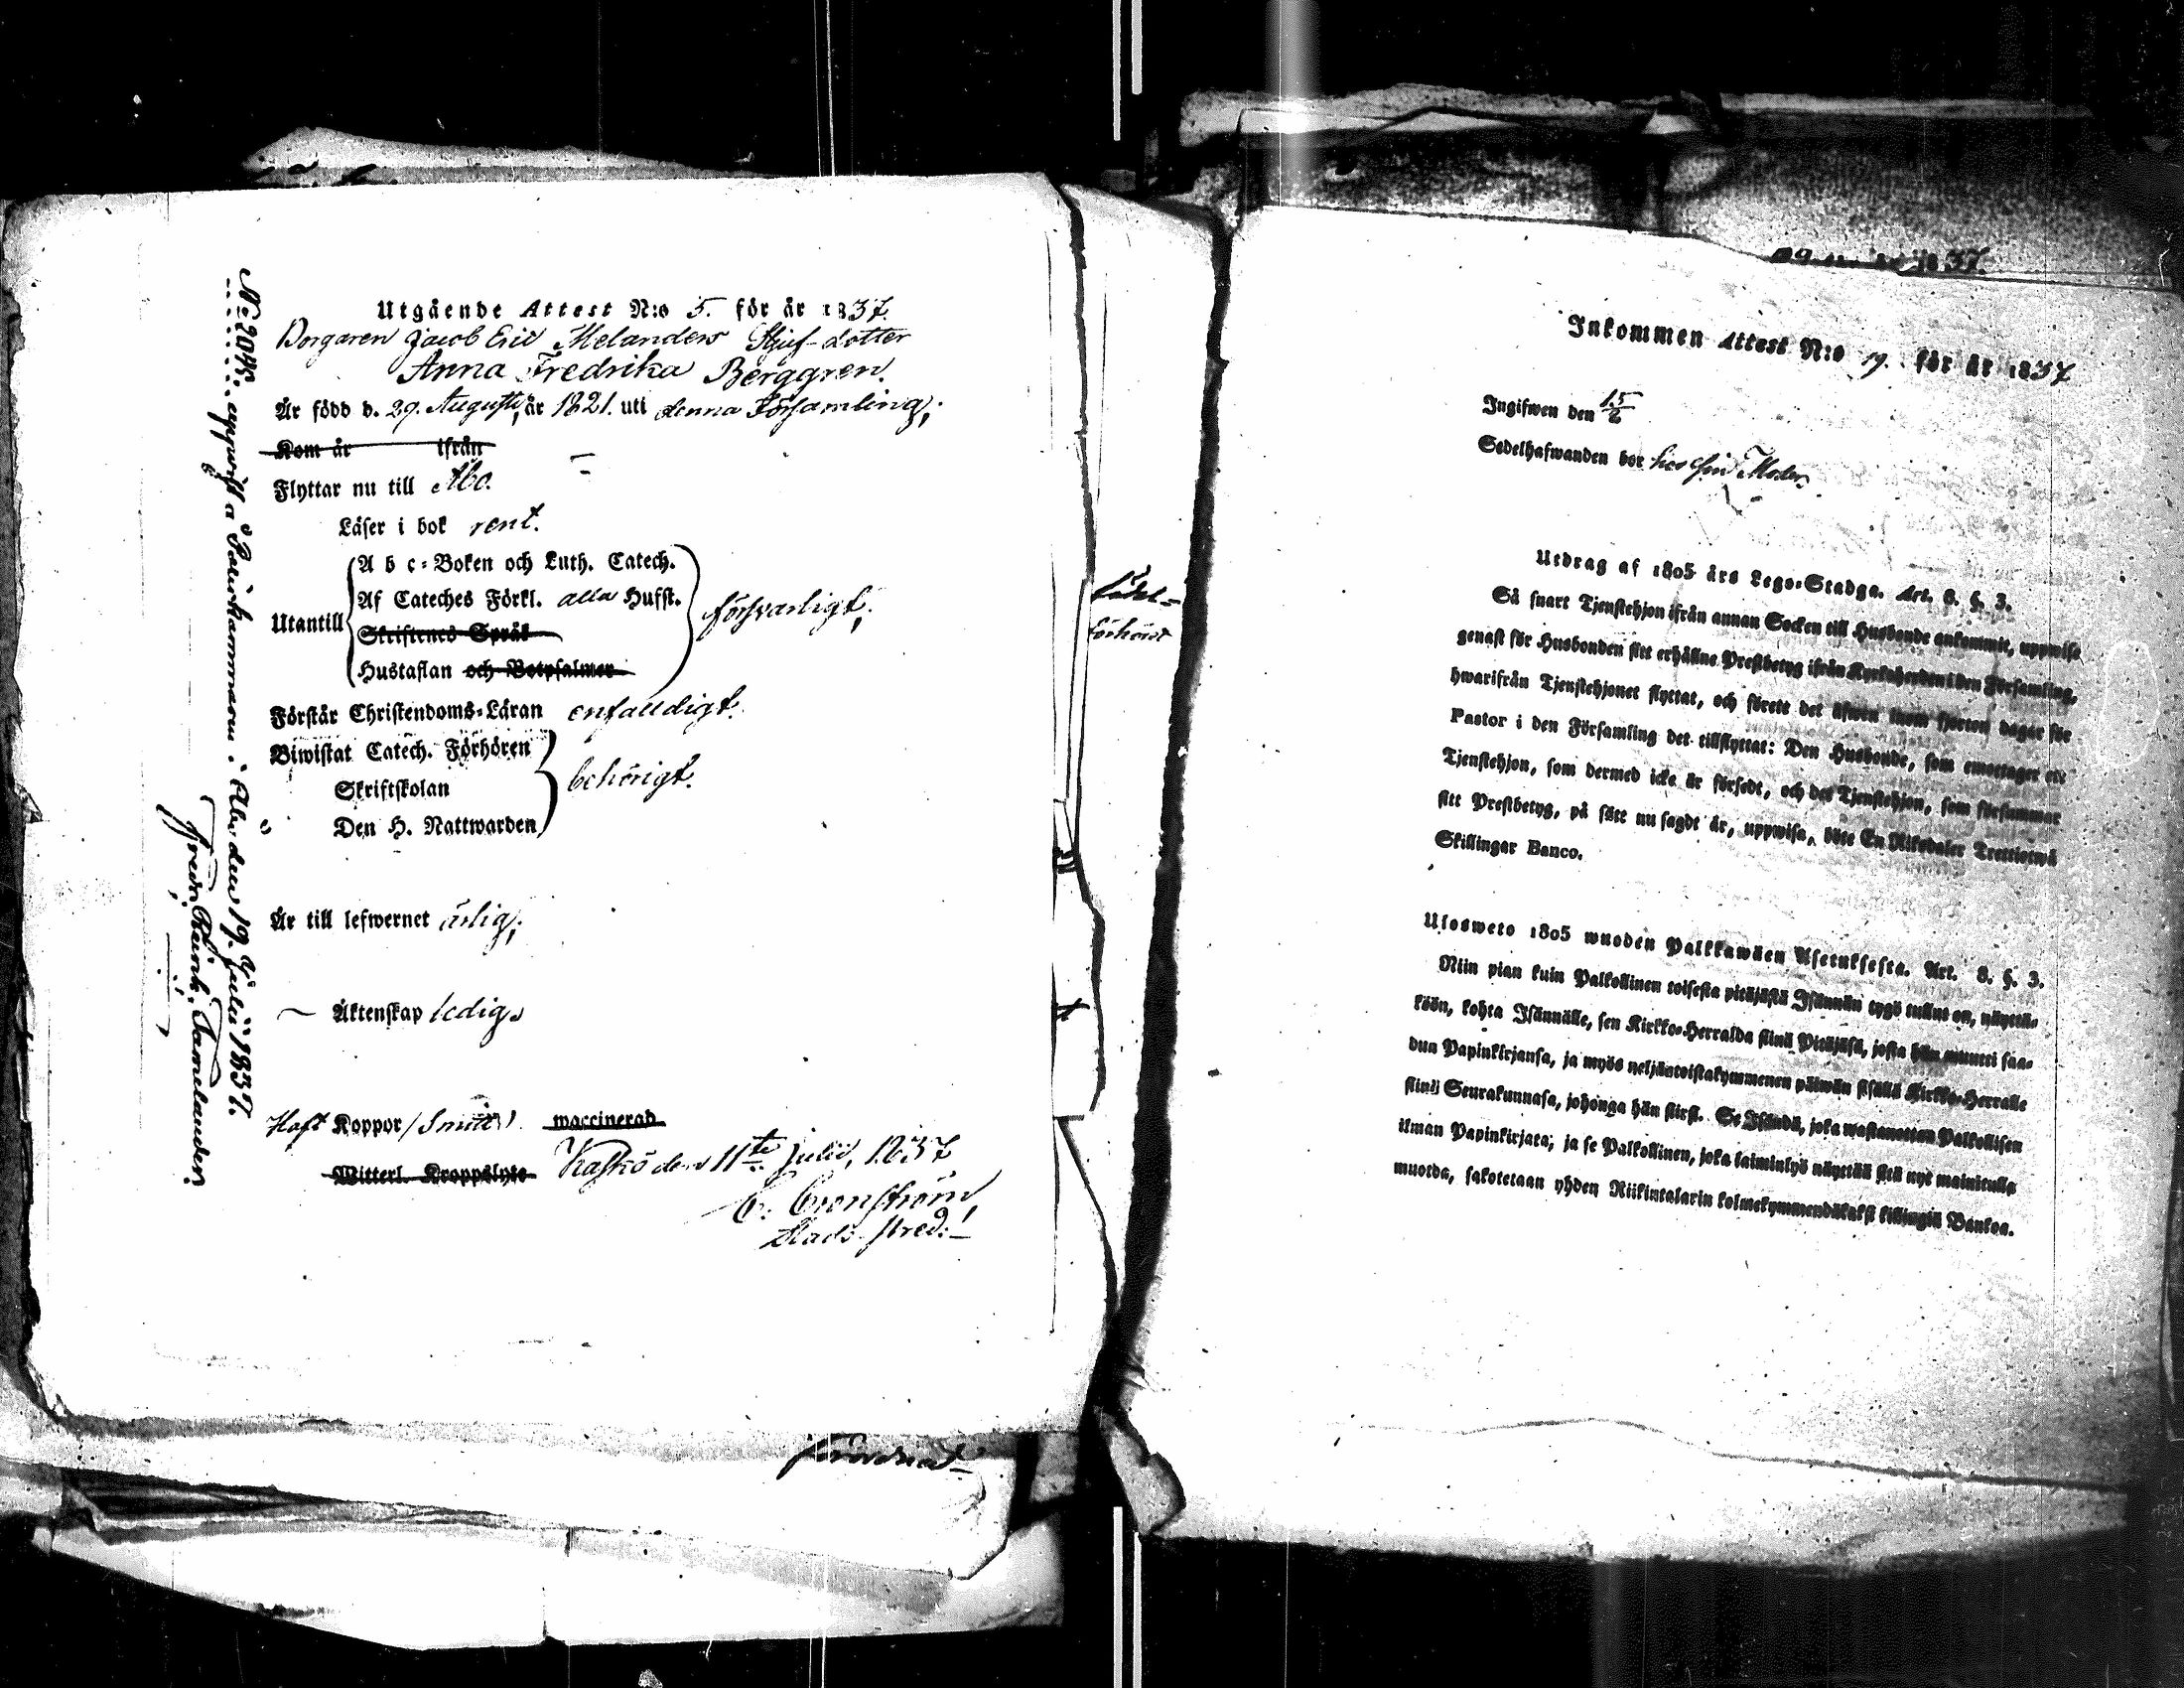 Utgående Attest N:o 5. för år 1837.
Borgaren Jacob Eric Melanders Stjuf-dotter
Anna Fredrika Berggren.
Är född d. 29. Augusti, år 1821. uti denna Församling;
Kom år ifrån
Flyttar nu till Åbo.
Läser i bok rent.
A b c-Boken och Luth. Catech.
Af Cateches Förkl. alla Hufst.
Utantill
Skriftenes Språk
Hustaflan och Botpsalmer
försvarligt;
Förstår Christendoms-Läran enfalldigt.
Biwistat Catech. Förhören
Skriftskolan
Den H. Nattwarden
behörigt.
Är till lefwernet ärlig;
Äktenskap ledig.
Haft Koppor /Smitt/ waccinerad
Witterl. Kroppslyte Kaskö den 11te Julii, 1837
C. Cronström,
Stads-
N:o 2045. uppwist å Poliskammaren i Åbo den 19. Julii 1837.
Fredr. Tamelander.
förhörd
1837.
Inkommen Attest N:o 19. för år 1837
Ingifwen den 15/2
Sedelhafwanden bor hos sin Moder
Utdrag af 1805 års Lego-Stadga. Art. 8. §. 3.
Så snart Tjenstehjon ifrån annan Socken till Husbonde ankommit, uppwise
genast för Husbonden sitt erhållne Prestbetyg ifrån Kyrkoherden i den Församling,
hwarifrån Tjenstehjonet flyttat, och förete det äfwen inom fjorton dagar för
Pastor i den Församling det tillflyttat: Den Husbonde, som emottager ett
Tjenstehjon, som dermed icke är försedt, och det Tjenstehjon, som försummar
sitt Prestbetyg, på sätt nu sagdt är, uppwisa, böte En Riksdaler Trettiotwå
Skillingar Banco.
Ulosweto 1805 wuoden Palkkawäen Asetuksesta. Art. 8. §. 3.
Niin pian kuin Palkollinen toisesta pitäjästä Isännän tygö tullut on, näyttä-
köön, kohta Isännälle, sen Kirkko-Herralda siinä Pitäjäsä, josta hän muutti saa-
dun Papinkirjansa, ja myös neljäntoistakymmenen päiwän sisällä Kirkko-Herralle
siinä Seurakunnasa, johonga hän siirsi. Se Isändä, joka wastanottaa Palkollisen
ilman Papinkirjata; ja se Palkollinen, joka laiminlyö näyttää sitä nyt mainitulla
muotoa, sakotetaan yhden Riikintalarin kolmekymmendäkaksi killingiä Bankoa.